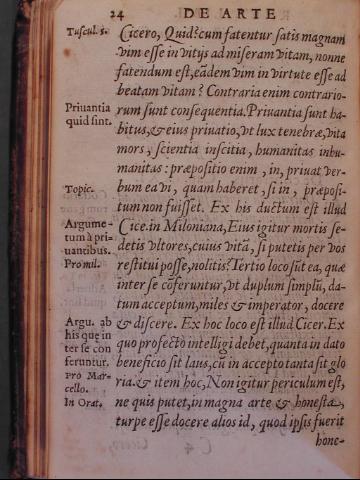 24 DE ARTE
Tuscul. 5.
Cicero, Quid? cum fatentur satis magnam
vim esse in vitijs ad miseram vitam, nonne
fatendum est, eādem vim in virtute esse ad
beatam vitam? Contraria enim contrario-
Priuantia
quid sint.
rum sunt consequentia. Priuantia sunt ha-
bitus, & eius priuatio, vt lux tenebræ, vita
mors, scientia inscitia, humanitas inhu-
manitas: præpositio enim, in, priuat ver-
Topic.
bum ea vi, quam haberet, si in, præposi-
tum non fuisset. Ex his ductum est illud
Argume-
tum à pri-
uantibus.
Pro mil.
Cice. in Miloniana, Eius igitur mortis se-
detis vltores, cuius vitā, si putetis per vos
restitui posse, nolitis? Tertio loco sūt ea, quæ
inter se cōferuntur, vt duplum simplū, da-
tum acceptum, miles & imperator, docere
Argu. ab
his que in
ter se con
feruntur.
Pro Mar-
cello.
In Orat.
& discere. Ex hoc loco est illud Cicer. Ex
quo profectò intelligi debet, quanta in dato
beneficio sit laus, cū in accepto tanta sit glo
ria. & item hoc, Non igitur periculum est,
ne quis putet, in magna arte & honesta,
turpe esse docere alios id, quod ipsis fuerit
hone-